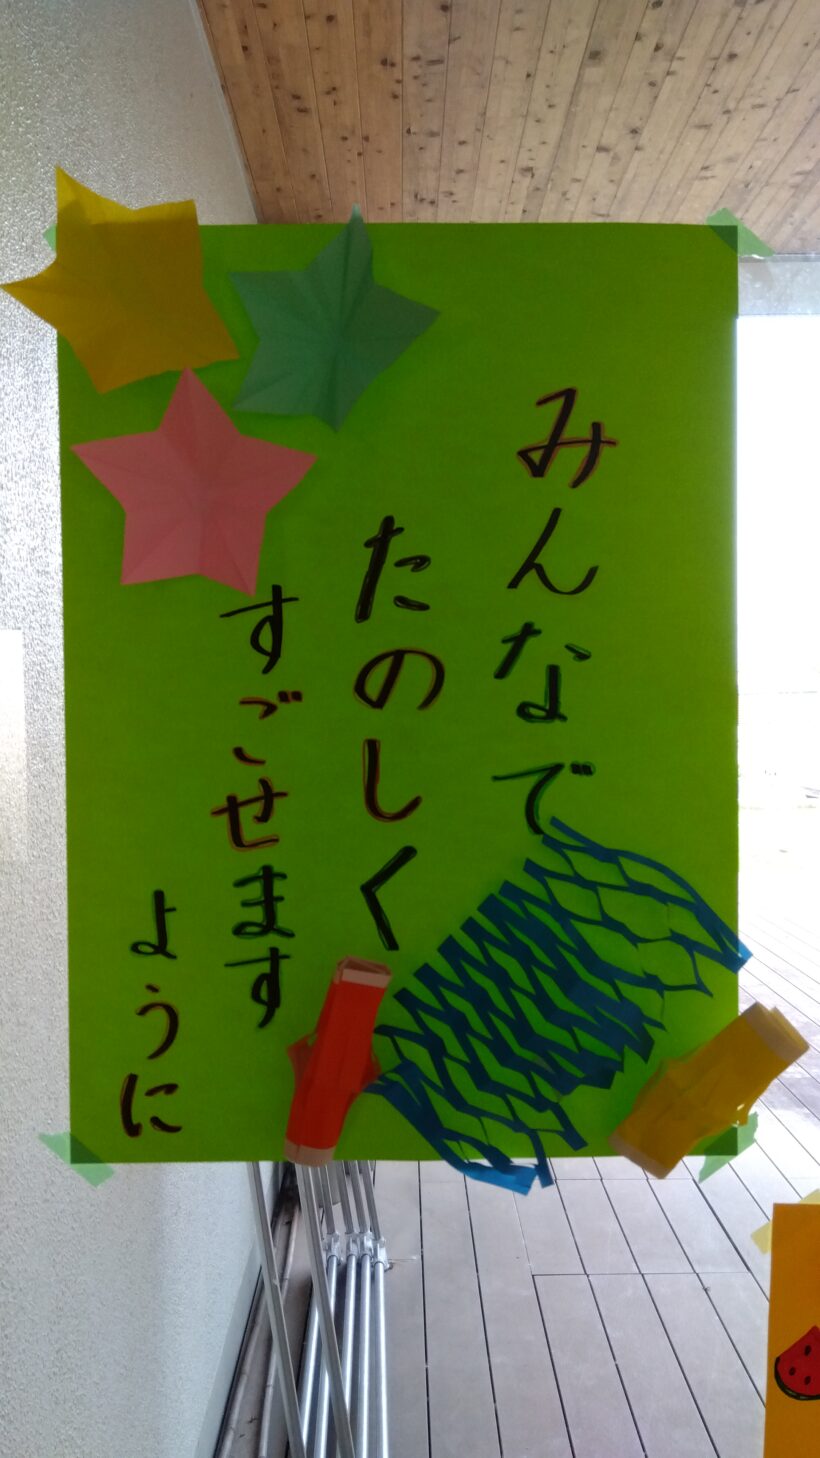 みんなで
たのしく
すごせます
ように